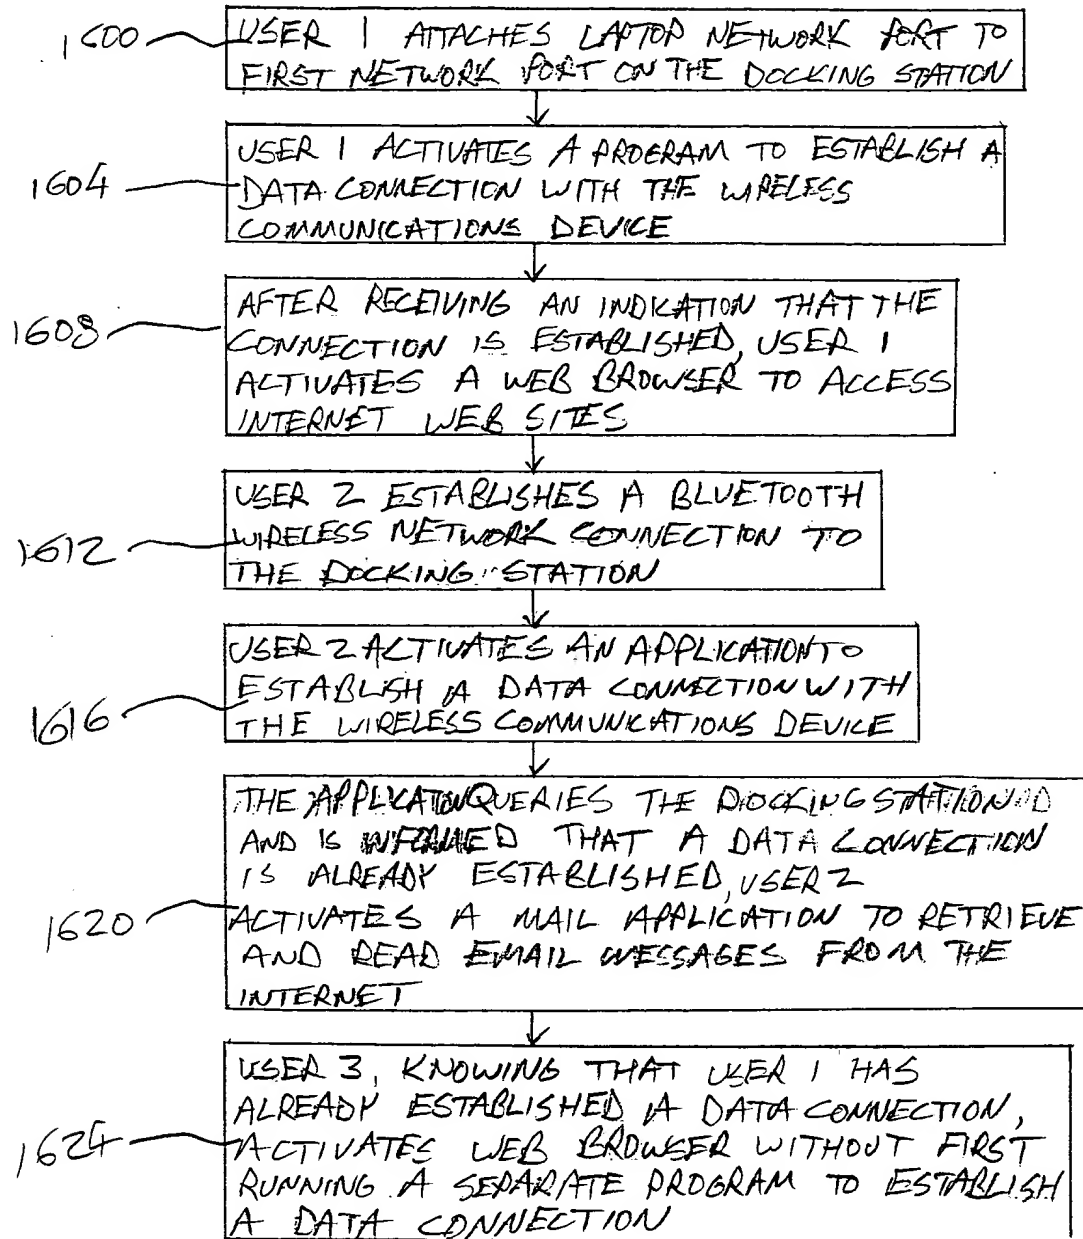 1600
USER 1 ATTACHES LAPTOP NETWORK PORT TO
FIRST NETWORK PORT ON THE DOCKING STATION
1604
USER 1 ACTIVATES A PROGRAM TO ESTABLISH A
DATA CONNECTION WITH THE WIRELESS
COMMUNICATIONS DEVICE
1608
AFTER RECEIVING AN INDICATION THAT THE
CONNECTION IS ESTABLISHED, USER 1
ACTIVATES A WEB BROWSER TO ACCESS
INTERNET WEB SITES
1612
USER 2 ESTABLISHES A BLUETOOTH
WIRELESS NETWORK CONNECTION TO
THE DOCKING STATION
1616
USER 2 ACTIVATES AN APPLICATION TO
ESTABLISH A DATA CONNECTION WITH
THE WIRELESS COMMUNICATIONS DEVICE
1620
THE APPLICATION QUERIES THE DOCKING STATION
AND IS INFORMED THAT A DATA CONNECTION
IS ALREADY ESTABLISHED, USER 2
ACTIVATES A MAIL APPLICATION TO RETRIEVE
AND READ EMAIL MESSAGES FROM THE
INTERNET
1624
USER 3, KNOWING THAT USER 1 HAS
ALREADY ESTABLISHED A DATA CONNECTION,
ACTIVATES WEB BROWSER WITHOUT FIRST
RUNNING A SEPARATE PROGRAM TO ESTABLISH
A DATA CONNECTION